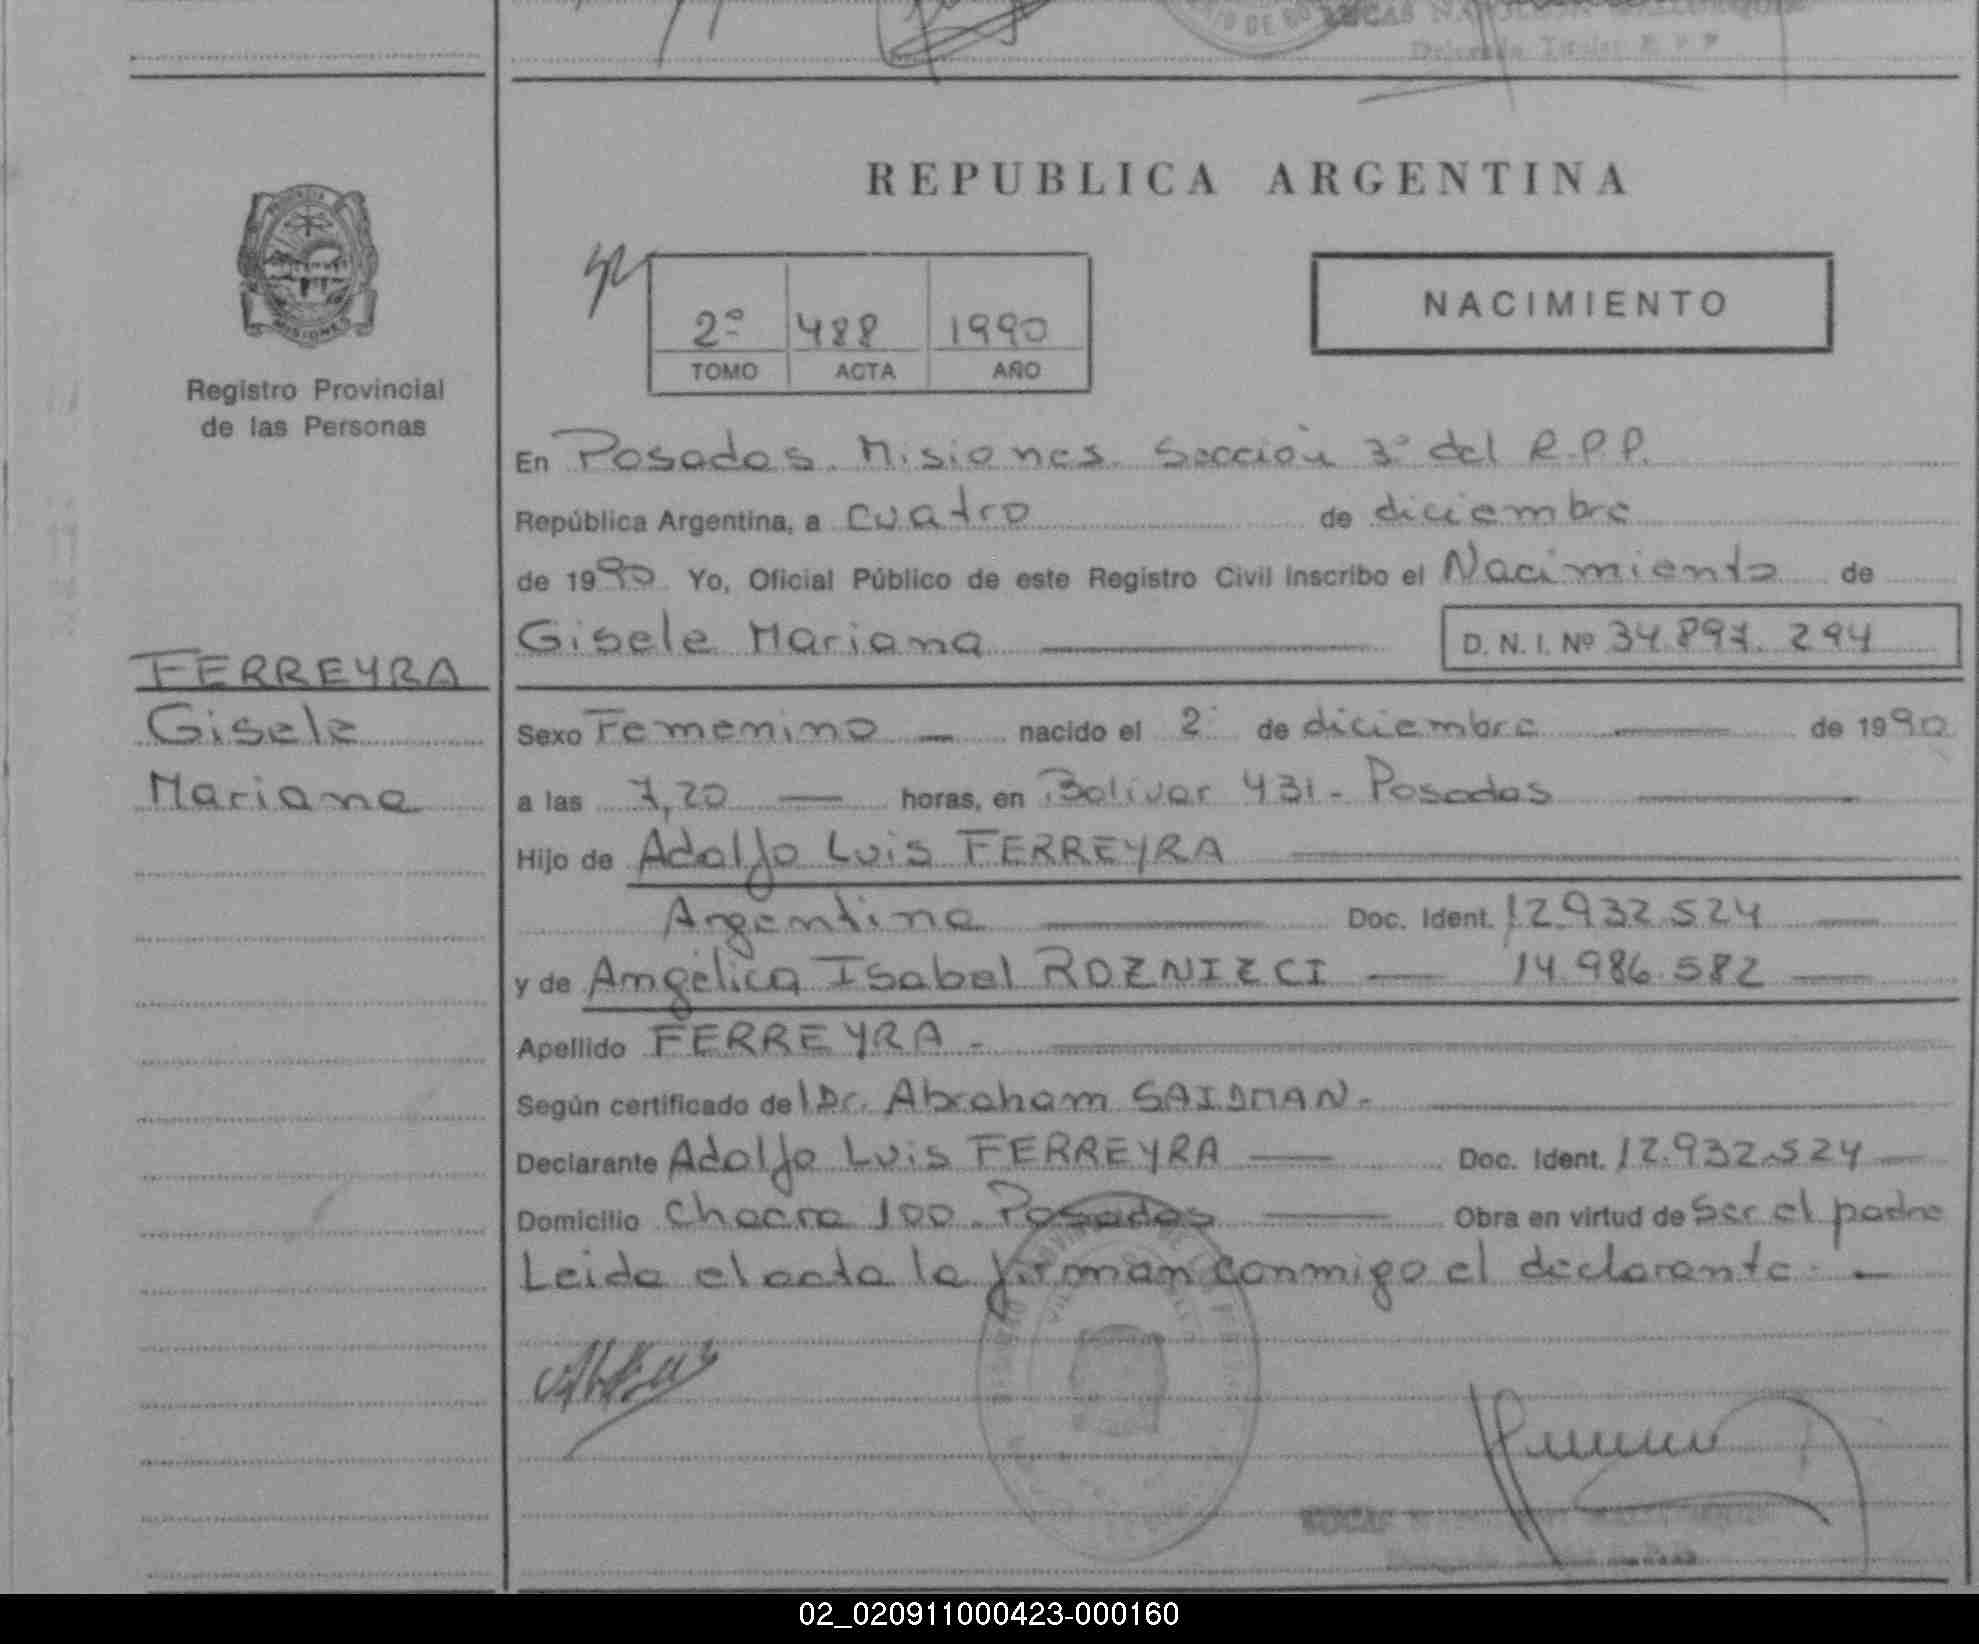 REPUBLICA ARGENTINA
MISIONES
Registro Provincial
de las Personas
2º 488 1990
TOMO ACTA AÑO
NACIMIENTO
En Posadas. Misiones. Sección 3º del R.P.P.
República Argentina, a cuatro de diciembre
de 1990 Yo, Oficial Público de este Registro Civil inscribo el Nacimiento de
Gisele Mariana
D. N. I. Nº 34.897.294
FERREYRA
Gisele
Mariana
Sexo Femenino nacido el 2 de diciembre de 1990
a las 7,20 horas, en Bolivar 431 - Posadas
Hijo de Adolfo Luis FERREYRA
Argentina Doc. Ident. 12.932.524
y de Angélica Isabel ROZNIECI 14.986.582
Apellido FERREYRA -
Según certificado del Dr. Abraham SAIDMAN -
Declarante Adolfo Luis FERREYRA Doc. Ident. 12.932.524
Domicilio Chacra 100. Posadas Obra en virtud de ser el padre
Leida el acta la firman conmigo el declarante. -
02_020911000423-000160